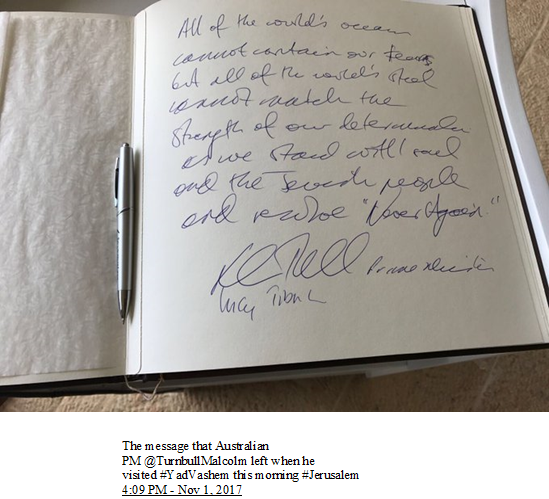 All of the world's oceans
cannot contain our tears
but all of the world's steel
cannot match the
strength of our determination
as we stand with Israel
and the Jewish people
and resolve "Never Again."
Prime Minister
Lucy Turnbull
The message that Australian
PM @TurnbullMalcolm left when he
visited #YadVashem this morning #Jerusalem
4:09 PM - Nov 1, 2017